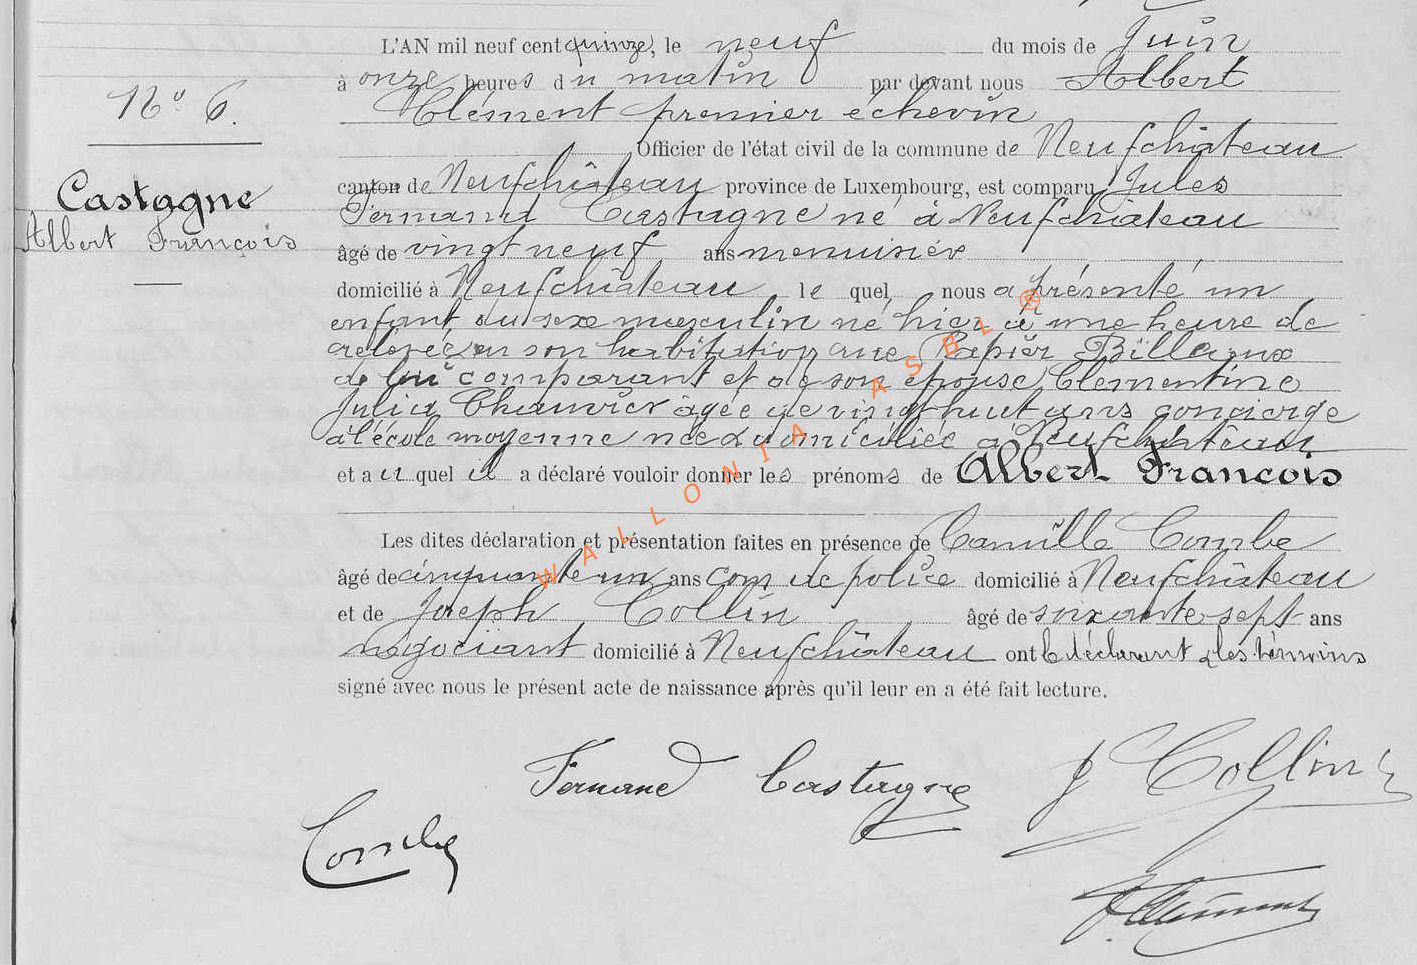 L'AN mil neuf cent quinze, le neuf du mois de Juin
à onze heures du matin par devant nous Albert
Clément premier échevin
Officier de l'état civil de la commune de Neufchâteau
canton de Neufchâteau province de Luxembourg, est comparu Jules
Fernand Castagne né à Neufchâteau
âgé de vingt neuf ans menuisier
domicilié à Neufchâteau le quel nous a présenté un
enfant du sexe masculin né hier à une heure de
relevée en son habitation rue
de lui comparant et de son épouse Clémentine
Julia âgée de vingt huit ans concierge
à l'école moyenne née & domiciliée à Neufchâteau
et au quel il a déclaré vouloir donner les prénoms de Albert François
Les dites déclaration et présentation faites en présence de Camille Combe
âgé de cinquante un ans com de police domicilié à Neufchâteau
et de Joseph Collin âgé de soixante sept ans
négociant domicilié à Neufchâteau ont le déclarant & les témoins
signé avec nous le présent acte de naissance après qu'il leur en a été fait lecture.
No 6.
Castagne
Albert François
Fernand Castagne
J Collin
Combe
Clément
WALLONIA ASBL ®